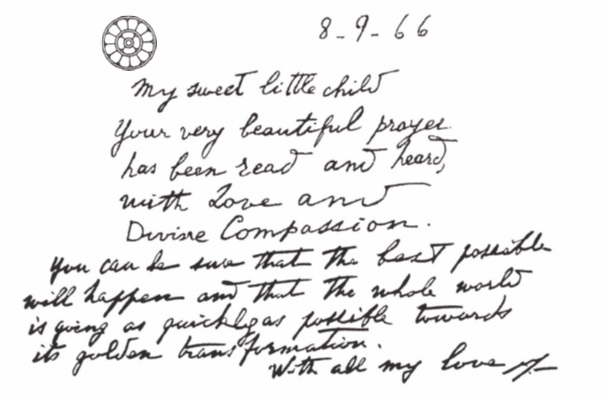 8-9-66
My sweet little child
Your very beautiful prayer
has been read and heard,
with Love and
Divine Compassion.
You can be sure that the best possible
will happen and that the whole world
is going as quickly as possible towards
its golden transformation.
With all my love